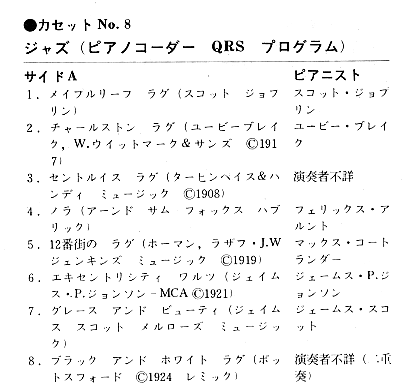 ●カセット No. 8
ジャズ（ピアノコーダー QRS プログラム）
サイドA ピアニスト
1．メイフルリーフ ラグ（スコット ジョフ スコット・ジョプ
リン） リン
2．チャールストン ラグ（ユービーブレイ ユービー・ブレイ
ク，W.ウイットマーク&サンズ ©191 ク
7）
3．セントルイス ラグ（ターヒンヘイス&ハ 演奏者不詳
ンディ ミュージック ©1908）
4．ノラ（アーンド サム フォックス ハブ フェリックス・ア
リック） ルント
5．12番街の ラグ（ホーマン，ラザフ・J.W マックス・コート
ジェンキンズ ミュージック ©1919） ランダー
6．エキセントリシティ ワルツ（ジェイム ジェームス・P.ジ
ス・.P.ジョンソン−MCA ©1921） ョンソン
7．グレース アンド ビューティ（ジェイム ジェームス・スコ
ス スコット メルローズ ミュージッ ット
ク）
8．ブラック アンド ホワイト ラグ（ボッ 演奏者不詳（二重
トスフォード ©1924 レミック） 奏）